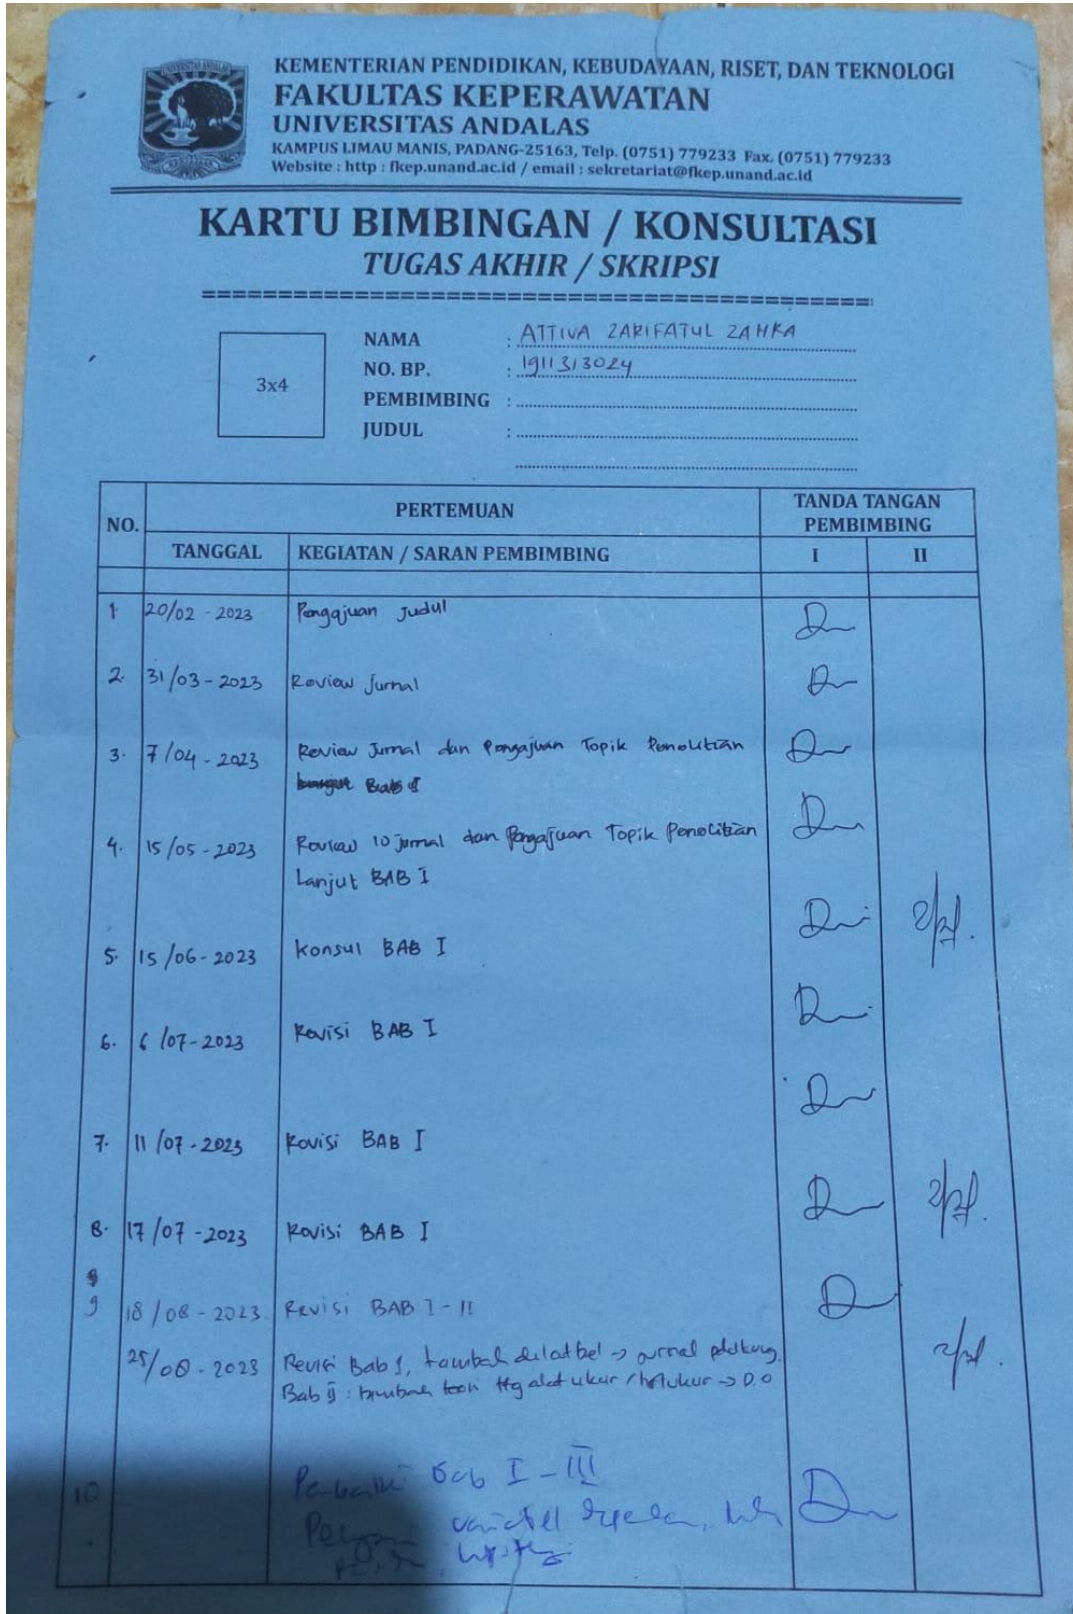 KEMENTERIAN PENDIDIKAN, KEBUDAYAAN, RISET, DAN TEKNOLOGI
FAKULTAS KEPERAWATAN
UNIVERSITAS ANDALAS
KAMPUS LIMAU MANIS, PADANG-25163, Telp. (0751) 779233 Fax. (0751) 779233
Website : http : fkep.unand.ac.id / email : sekretariat@fkep.unand.ac.id
UNIVERSITAS ANDALAS
KARTU BIMBINGAN / KONSULTASI
TUGAS AKHIR / SKRIPSI
3x4
NAMA : ATTIVA ZARIFATUL ZAHRA
NO. BP. : 1911313024
PEMBIMBING :
JUDUL :
NO. PERTEMUAN TANDA TANGAN PEMBIMBING
TANGGAL KEGIATAN / SARAN PEMBIMBING I II
1 20/02 - 2023 Pengajuan Judul
2. 31/03 - 2023 Review Jurnal
3. 7/04 - 2023 Review Jurnal dan Pengajuan Topik Penelitian
Bab I
4. 15/05 - 2023 Review 10 jurnal dan Pengajuan Topik Penelitian
Lanjut BAB I
5. 15/06 - 2023 Konsul BAB I
6. 6/07 - 2023 Revisi BAB I
7. 11/07 - 2023 Revisi BAB I
8. 17/07 - 2023 Revisi BAB I
9 18/08 - 2023 Revisi BAB I - II
25/08 - 2023 Revisi Bab 1, tambah dilatbel →
Bab : tambah teori ttg alat ukur / → D.O
10 bab I - III
variabel